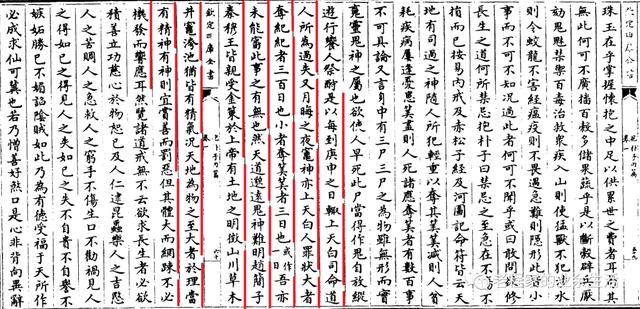 珠玉在乎掌握懷抱之中足以供累世之費者耳苟其
無此何可不廣播百穀多儲果蔬乎是以斷穀辟兵厭
劾鬼魅禁禦百毒治救衆疾入山則使猛獸不犯涉水
則令蛟龍不害經瘟疫則不畏遇急難則隱形此皆小
事而不可不知况過此者何可不聞乎或曰敢問欲修
長生之道何所禁忌抱朴子曰禁忌之至急在不傷不
損而已按易内戒及赤松子經及河圖記命符皆云天
地有司過之神隨人所犯輕重以奪其算算減則人貧
耗疾病屢逢憂患算盡則人死諸應奪算者有數百事
不可具論又言身中有三尸三尸之為物雖無形而實
魂靈鬼神之屬也欲使人早死此尸當得作鬼自放縱
遊行饗人祭酹是以每到庚申之日輒上天白司命道
人所為過失又月晦之夜竈神亦上天白人罪狀大者
奪紀紀者三百日也小者奪算算者三日也或作一日吾亦
未能審此事之有無也然天道邈遠鬼神難明趙簡子
秦穆王皆親受金策於上帝有土地之明徵山川草木
井竈洿池猶皆有精氣况天地為物之至大者於理當
欽定四庫全書
有精神有神則宜賞善而罰惡但其體大而網疎不必
機發而響應耳然覽諸道戒無不云欲求長生者必欲
積善立功慈心於物恕己及人仁逮昆蟲樂人之吉愍
人之苦賙人之急救人之窮手不傷生口不勸禍見人
之得如己之得見人之失如己之失不自貴不自譽不
嫉妬勝己不媚諂陰賊如此乃為有德受福于天所作
必成求仙可冀也若乃憎善好煞口是心非背向異辭